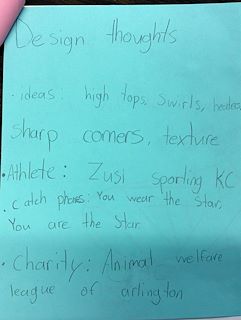 Design thoughts
· ideas: high tops, swirls,
sharp corners, texture
· Athlete: Zusi sporting KC
· Catch phrase: You wear the Star,
You are the Star
· Charity: Animal welfare
league of arlington